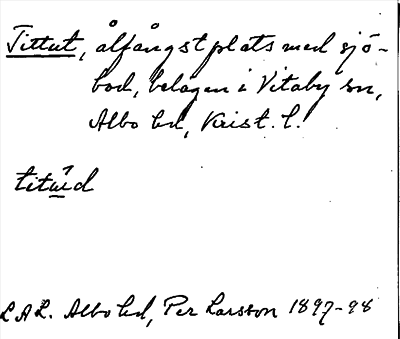 Tittut, ålfångstplats med sjö-
bod, belägen i Vitaby sn,
Albo hd, Krist. l.
titúd
LAL. Albo hd, Per Larsson 1897-98